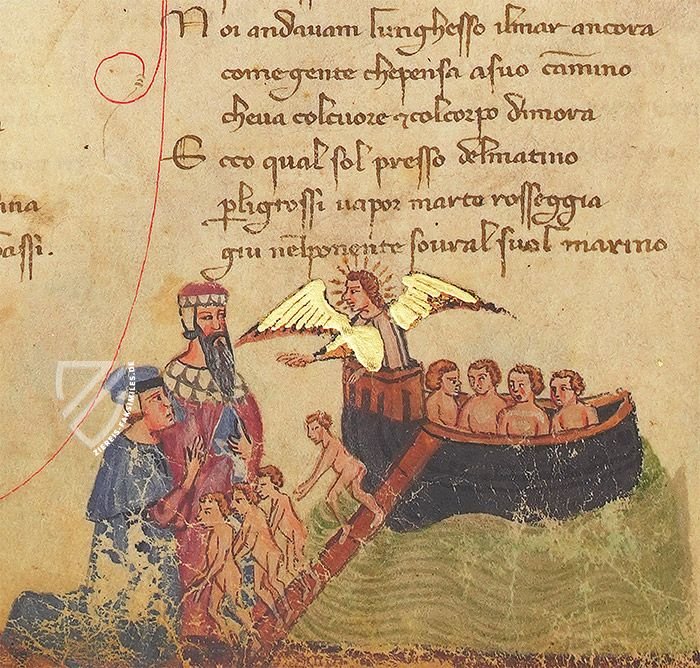 Noi andavam lunghesso ilmar ancora
come gente chepensa asuo cãmino
cheva colcuore ⁊colcorpo dimora
Ecco qual sol presso delmatino
ꝑligrossi vapor marte rosseggia
giu nelponente sovral suol marino
ma
assi.
ZIEREIS FACSIMILES.DE